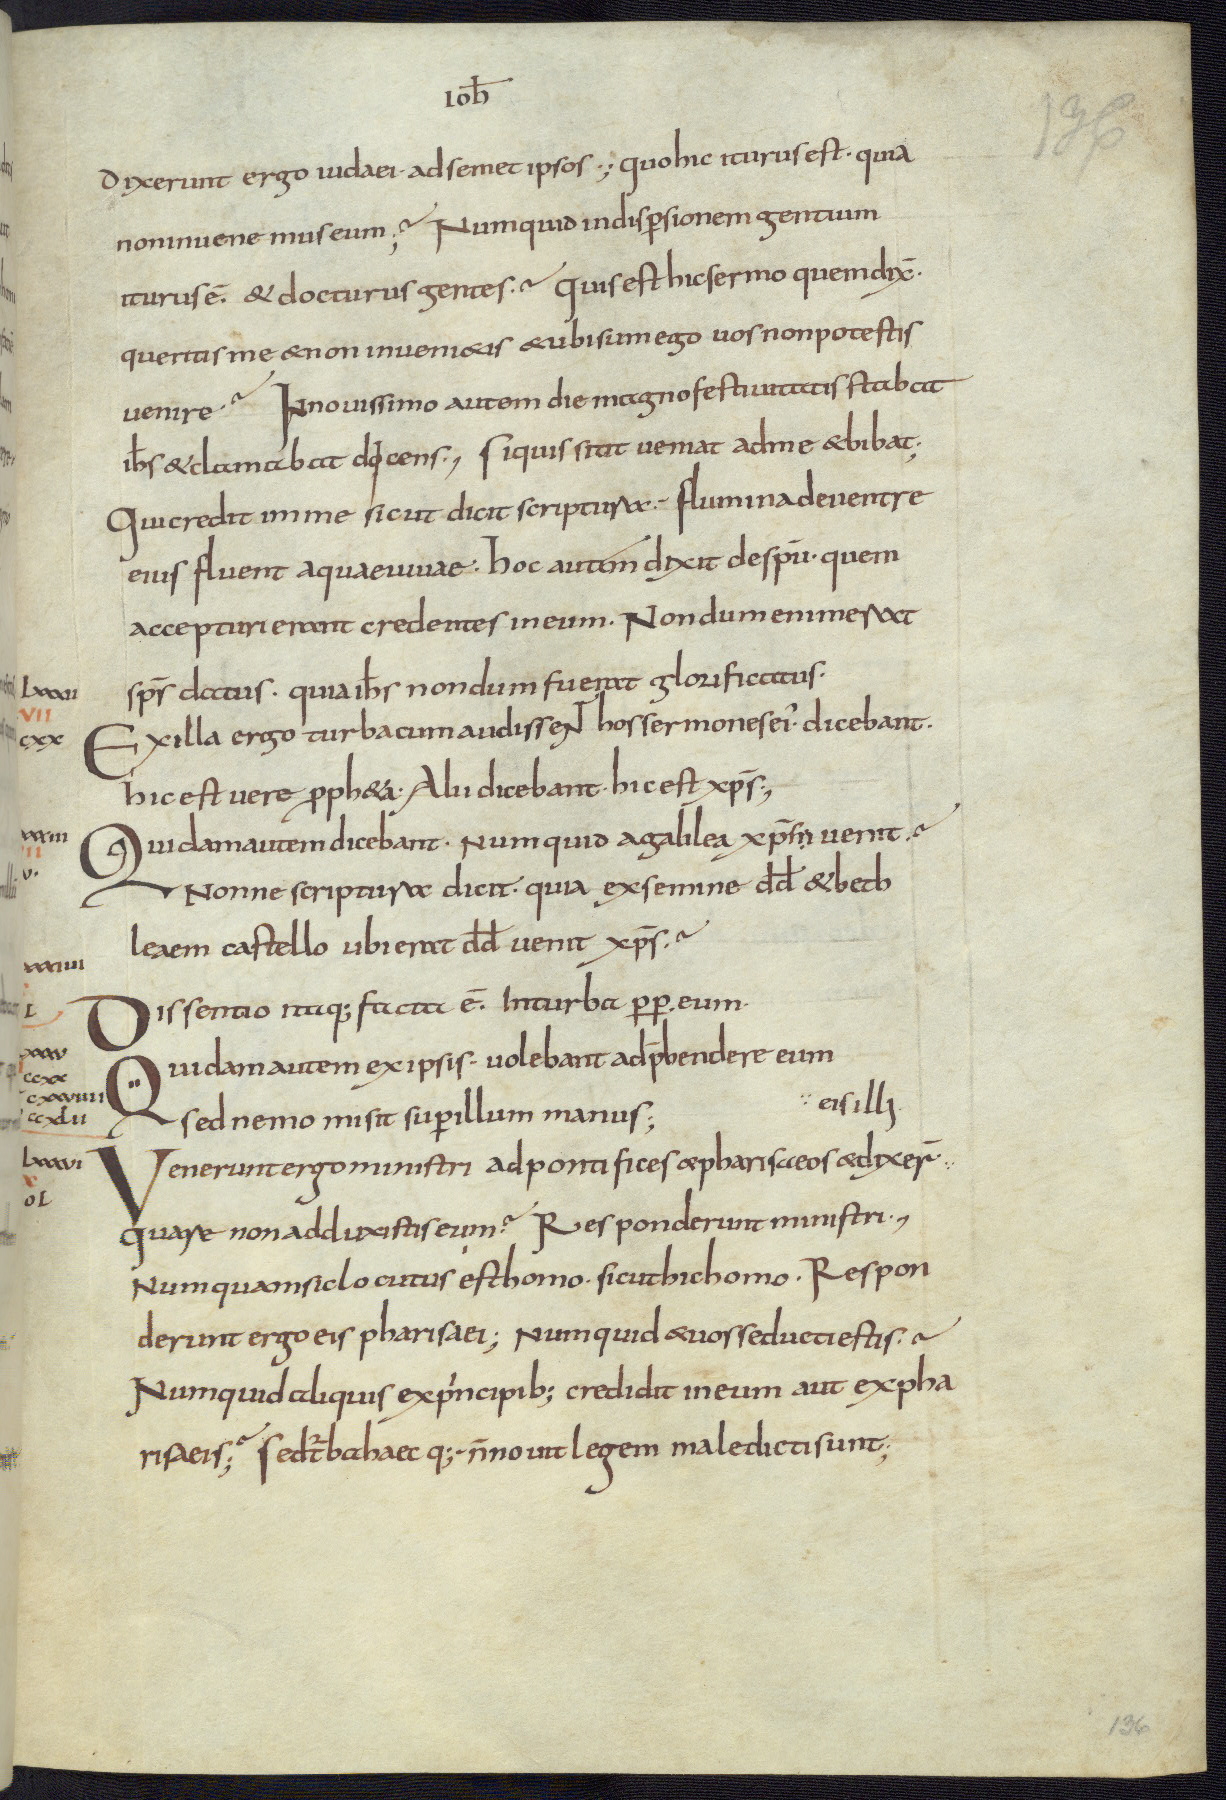 Ioħ
136
Dixerunt ergo iudaei · adsemet ipsos ·; quohic iturusest · quia
noninuenemuseum;? Numquid indispersionem gentium
iturus ē. & docturusgentes.? Quisest hicsermo quemdix̄·
queritisme &non inueni&is &ubisumego uos nonpotestis
uenire·? Innouissimo autem die magnofestiuitatis stabat
ih̄s &clamabat docens·, Siquis sitit ueniat adme &bibat;
Quicredit inme sicut dicit scriptura·- flumina deuentre
eius fluent aquaeuiuae · hoc autem dixit desp̄u · quem
accepturierant credentes ineum. Nondumenimerat
sp̄s datus · quia ih̄s nondum fuerat glorificatus·
Lxxxii
VII
cxx
Exilla ergo turbacumaudissent hossermoneseī· dicebant·
hicest uere proph&a· Alii dicebant · hic est xp̄s·,
xxxiii
v·
Quidamautemdicebant · Numquid agalilea xp̄s uenit·?
Nonne scriptura dicit · quia exsemine dd̄ &beth
leaem castello ubi erat dd̄ uenit xp̄s·?
xxxiiii
Dissentio itaq; facta ē. Inturba pp̱. eum·
xxxv
ccxx
cxxviiii
ccxlii
Quidamautem exipsis · uolebant adp̄hendere eum
sednemo misit superillum manus;
·: eisilli
Lxxxvi
x
Veneruntergoministri adpontifices &pharisaeos &dixer̄ ·:
quare nonadduxistiseum? Responderuntministri·,
Numquamsiclocutus esthomo · sicuthichomo · Respon
derunt ergo eis pharisaei; Numquid &uosseductiestis·?
Numquidaliquis exprincipib; credidit ineum aut expha
risaeis;? Sedturbahaec q;·- n̄nouit legem maledictisunt;
136